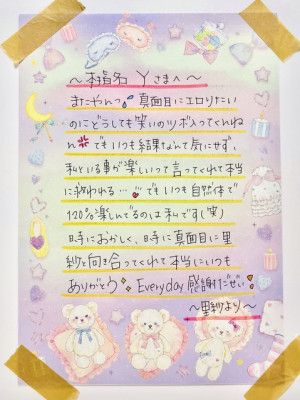 〜本指名 Yさまへ〜
またやんっ💦真面目にエロりたい
のにどうしても笑いのツボ入ってくれねん
💢でもいつも結果なんて気にせず、
私といる事が楽しいって言ってくれて本当
に救われる…♡でもいつも自然体で
120%楽しんでるのは私です(笑)
時におかしく、時に真面目に里
紗と向き合ってくれて本当にいつも
ありがとう Everyday 感謝だぜぃ
〜里紗より〜